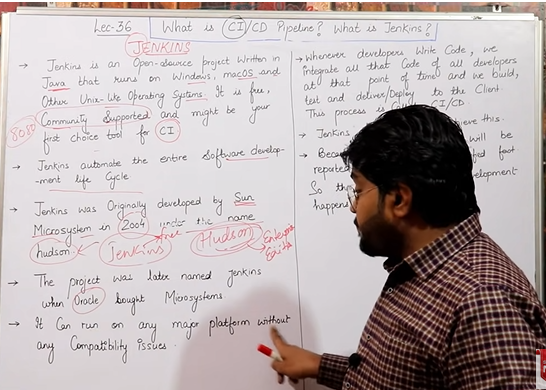 Lec-36 What is CI/CD Pipeline? What is Jenkins?
JENKINS
→ Jenkins is an Open-source project written in
Java that runs on Windows, macOS and
Other Unix-like Operating Systems. It is free,
Community Supported and might be your
first choice tool for CI
8080
→ Jenkins automate the entire Software develop-
-ment life Cycle
→ Jenkins was Originally developed by Sun
Microsystem in 2004 under the name
hudson. Jenkins free Hudson Enterprise
→ The project was later named Jenkins
when Oracle bought Microsystems.
→ It Can run on any major platform without
any Compatibility issues.
→ Whenever developers Write Code, we
integrate all that Code of all developers
at that point of time and we build,
test and deliver/Deploy to the Client.
This process is called CI/CD.
→ Jenkins achieve this.
→ Beca will be
reported feet
So th development
happens